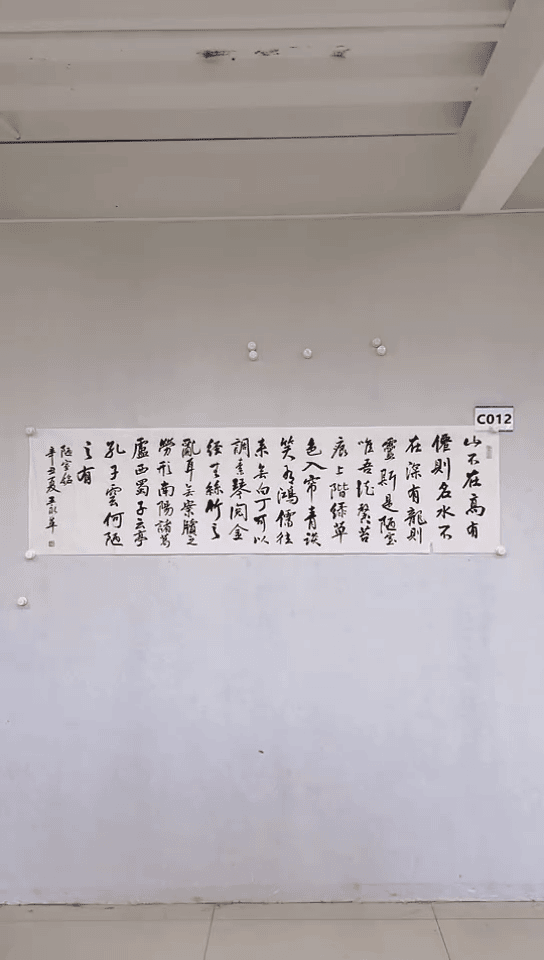 C012
山不在高有
僊則名水不
在深有龍則
靈斯是陋室
唯吾德馨苔
痕上階緑草
色入帘青談
笑有鴻儒往
来無白丁可以
調素琴閲金
經無絲竹之
亂耳無案牘之
勞形南陽諸葛
廬西蜀子云亭
孔子雲何陋
之有
陋室銘
辛丑夏